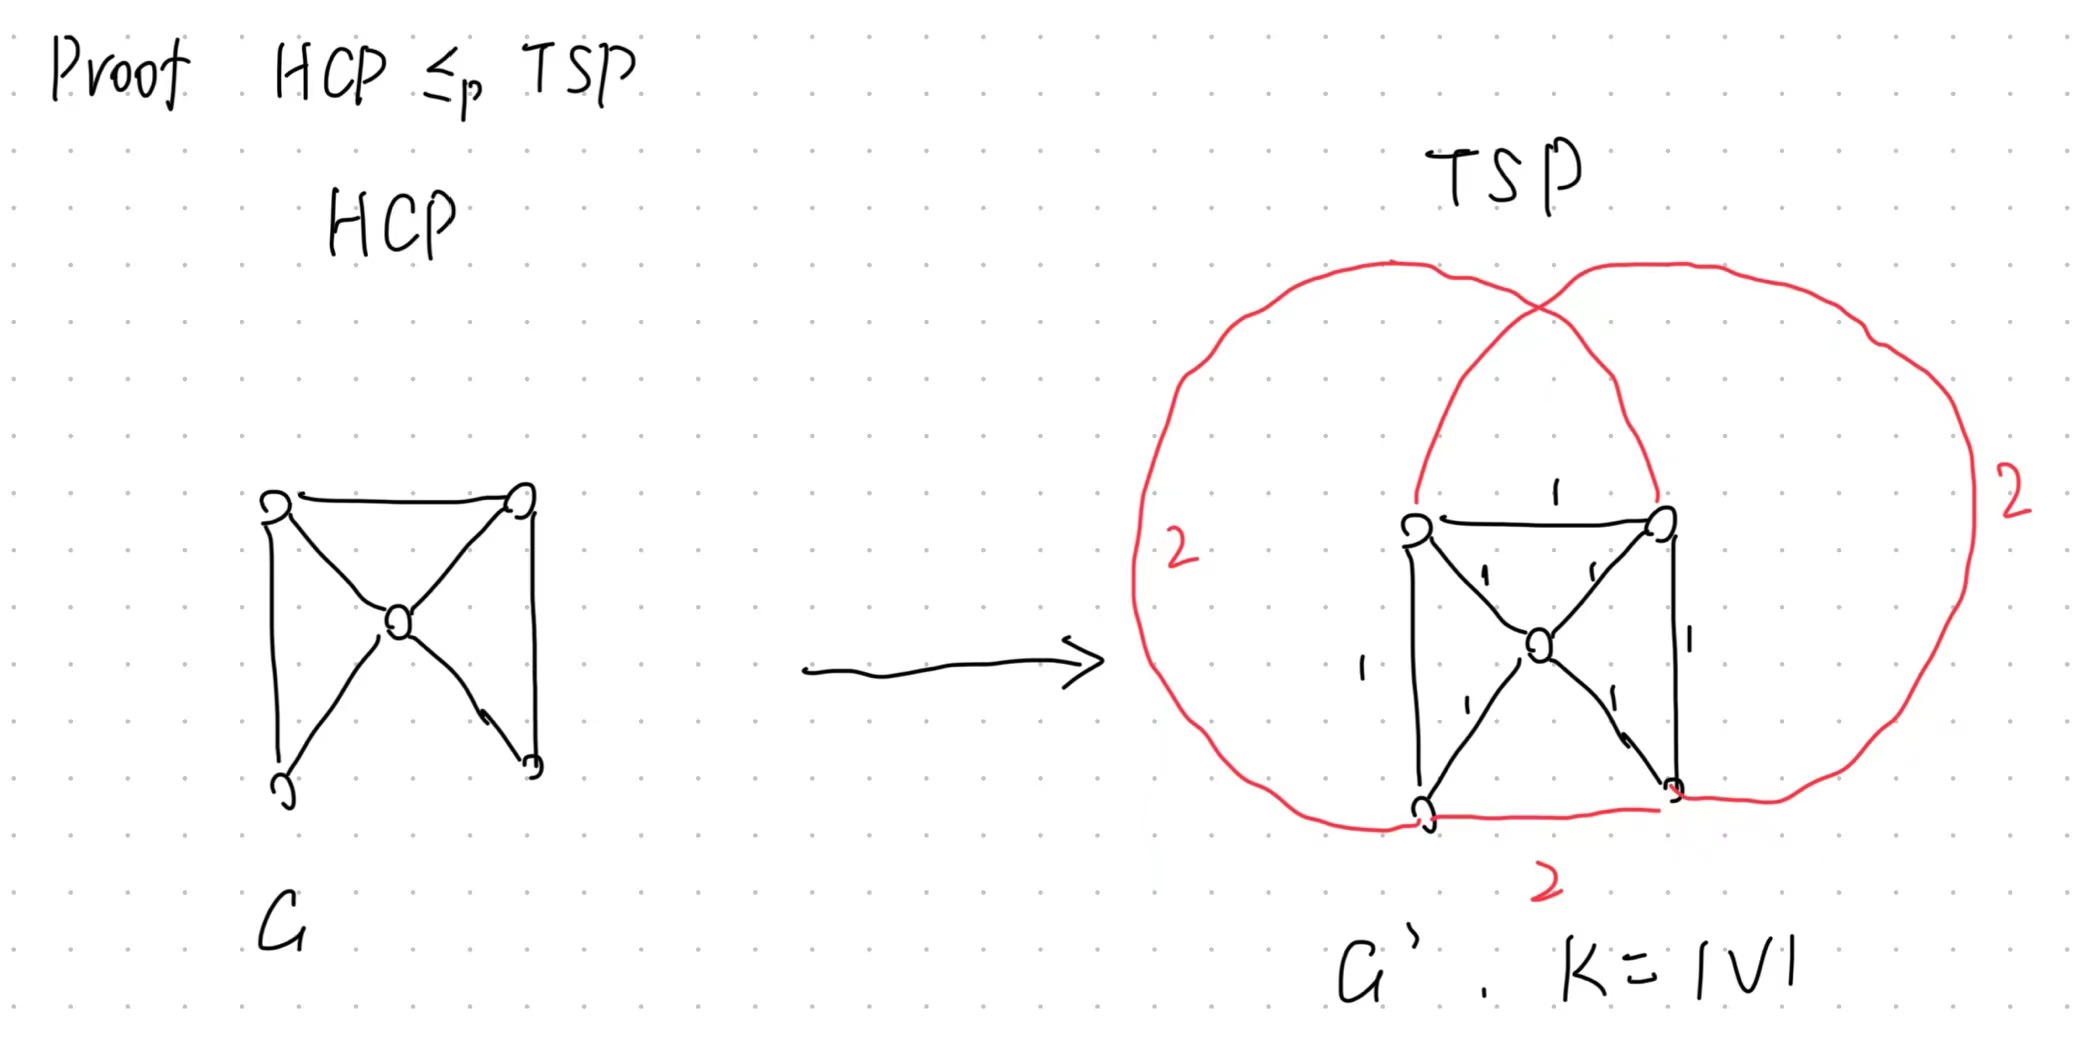 Proof HCP ≤p TSP
HCP
TSP
2
2
1
1
1
1
1
1
1
2
G
G'. K = |V|